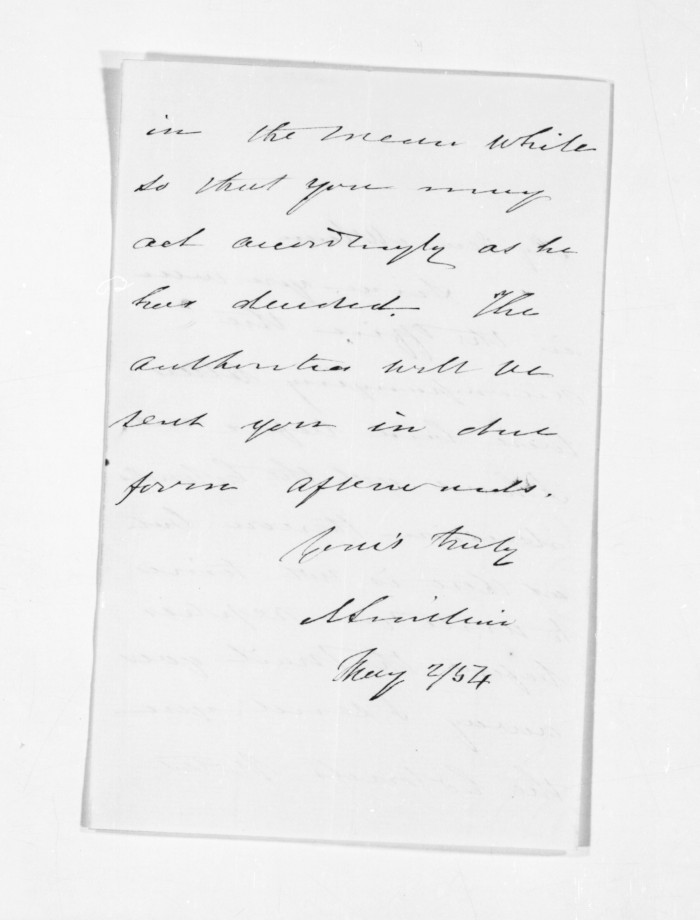 in the mean while
so that you may
act accordingly as he
has decided. The
authorities will be
sent you in due
form afterwards.
Yours truly
May 2/54